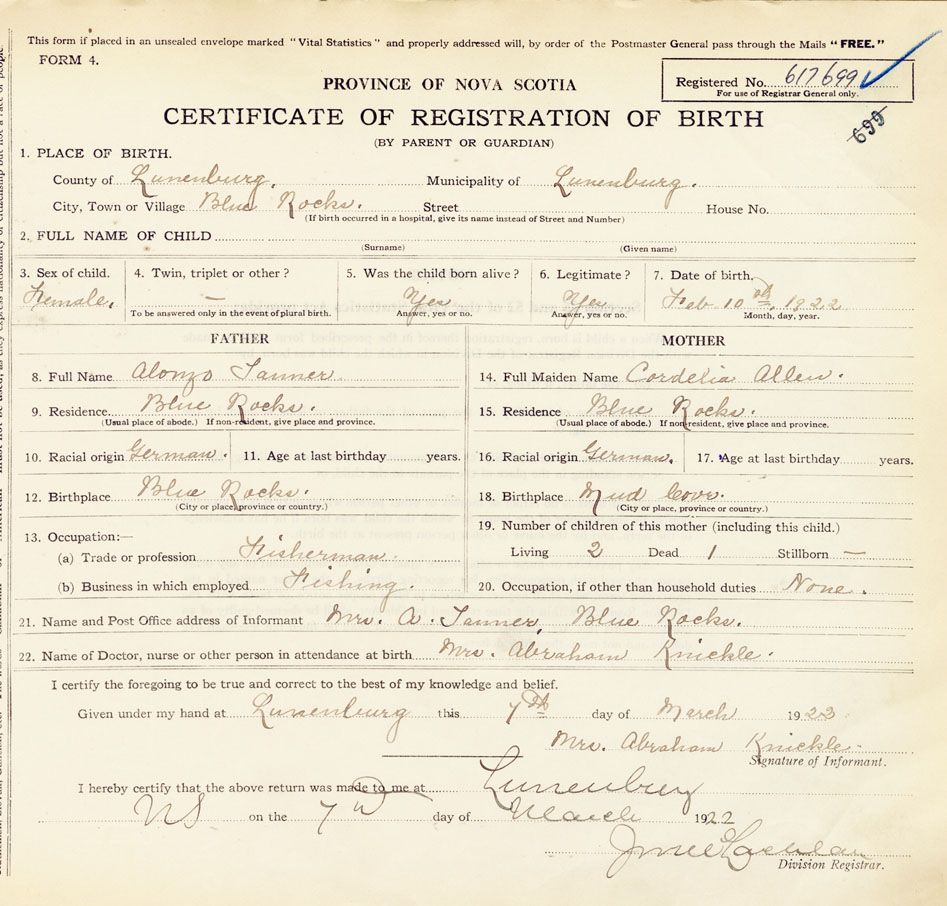 This form if placed in an unsealed envelope marked "Vital Statistics" and properly addressed will, by order of the Postmaster General pass through the Mails "FREE."
FORM 4.
PROVINCE OF NOVA SCOTIA
Registered No. 617699
For use of Registrar General only.
699
CERTIFICATE OF REGISTRATION OF BIRTH
(BY PARENT OR GUARDIAN)
1. PLACE OF BIRTH.
County of Lunenburg. Municipality of Lunenburg.
City, Town or Village Blue Rocks. Street House No.
(If birth occurred in a hospital, give its name instead of Street and Number)
2. FULL NAME OF CHILD
(Surname) (Given name)
3. Sex of child. 4. Twin, triplet or other? 5. Was the child born alive? 6. Legitimate? 7. Date of birth.
Female. — Yes Yes Feb 10th, 1922
To be answered only in the event of plural birth. Answer, yes or no. Answer, yes or no. Month, day, year.
FATHER MOTHER
8. Full Name Alonzo Tanner 14. Full Maiden Name Cordelia Allen.
9. Residence Blue Rocks. 15. Residence Blue Rocks.
(Usual place of abode.) If non-resident, give place and province. (Usual place of abode.) If non-resident, give place and province.
10. Racial origin German. 11. Age at last birthday years. 16. Racial origin German. 17. Age at last birthday years.
12. Birthplace Blue Rocks. 18. Birthplace Mud Cove.
(City or place, province or country.) (City or place, province or country.)
13. Occupation:— 19. Number of children of this mother (including this child.)
(a) Trade or profession Fisherman. Living 2 Dead 1 Stillborn —
(b) Business in which employed Fishing. 20. Occupation, if other than household duties None.
21. Name and Post Office address of Informant Mrs. A. Tanner, Blue Rocks.
22. Name of Doctor, nurse or other person in attendance at birth Mrs. Abraham Knickle.
I certify the foregoing to be true and correct to the best of my knowledge and belief.
Given under my hand at Lunenburg this 7th day of March 1923
Mrs. Abraham Knickle.
Signature of Informant.
I hereby certify that the above return was made to me at Lunenburg
NS on the 7th day of March 1922
Division Registrar.